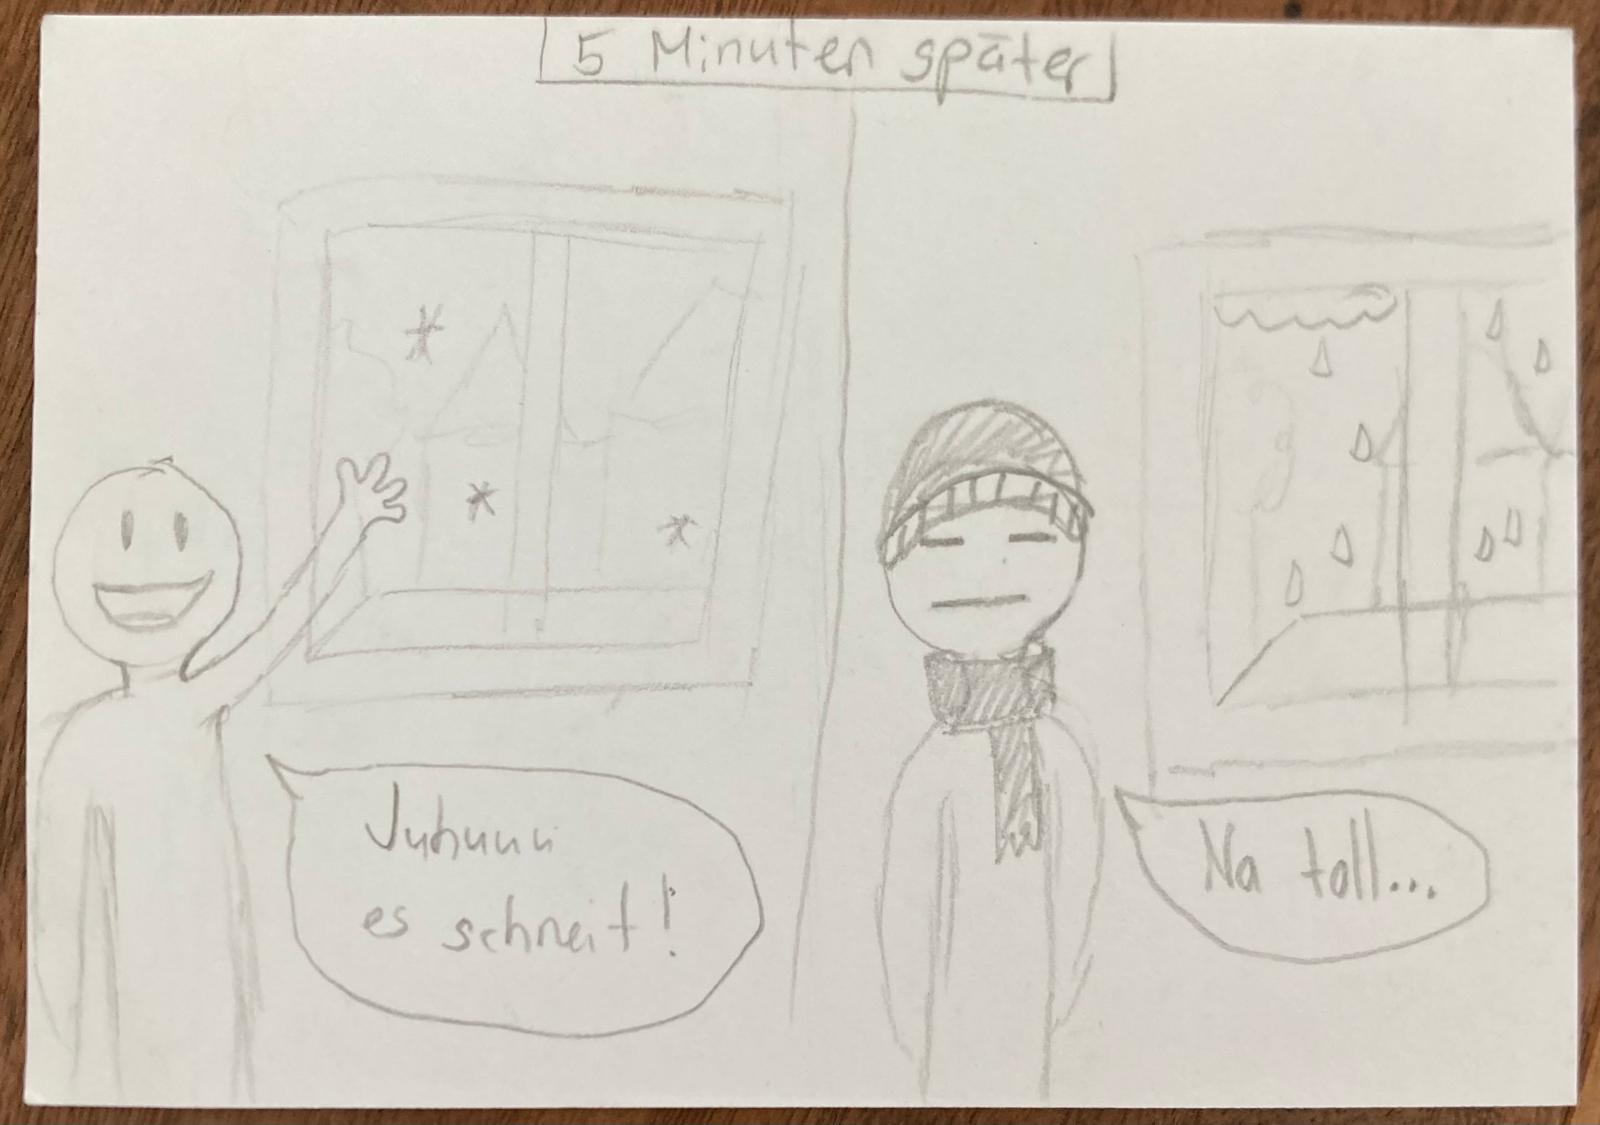 5 Minuten später
Juhuuu
es schneit!
Na toll...